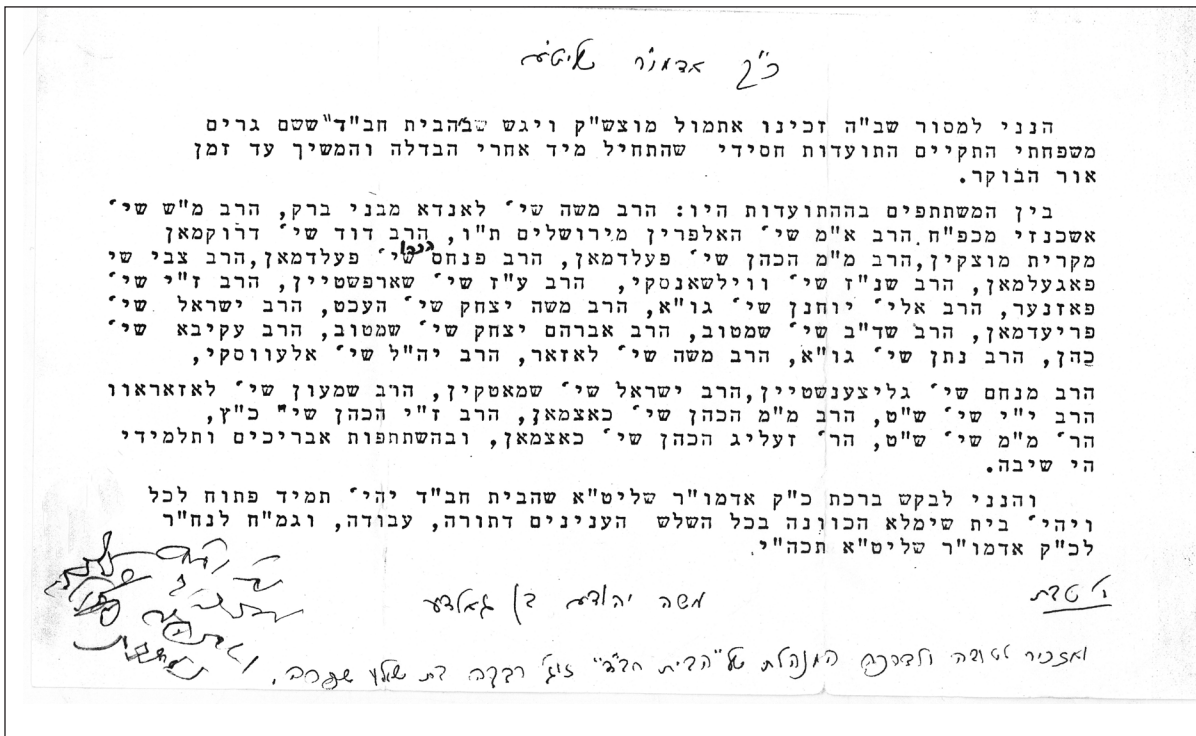 כ"ק אדמו"ר שליט"א
הנני למסור שב"ה זכינו אתמול מוצש"ק ויגש שב"הבית חב"ד" ששם גרים
משפחתי התקיים התועדות חסידי שהתחיל מיד אחרי הבדלה והמשיך עד זמן
אור הבוקר.
בין המשתתפים בההתועדות היו: הרב משה שי' לאנדא מבני ברק, הרב מ"ש שי'
אשכנזי מכפ"ח, הרב א"מ שי' האלפרין מירושלים ת"ו, הרב דוד שי' דרוקמאן
מקרית מוצקין, הרב מ"מ הכהן שי' פעלדמאן, הרב פנחס הכהן שי' פעלדמאן, הרב צבי שי
פאגעלמאן, הרב שנ"ז שי' ווילשאנסקי, הרב ע"ז שי' שארפשטיין, הרב ז"י שי'
פאזנער, הרב אלי' יוחנן שי' גו"א, הרב משה יצחק שי' העכט, הרב ישראל שי'
פריעדמאן, הרב שד"ב שי' שמטוב, הרב אברהם יצחק שי' שמטוב, הרב עקיבא שי'
כהן, הרב נתן שי' גו"א, הרב משה שי' לאזאר, הרב יה"ל שי' אלעווסקי,
הרב מנחם שי' גליצענשטיין, הרב ישראל שי' שמאטקין, הרב שמעון שי' לאזאראוו
הרב י"י שי' ש"ט, הרב מ"מ הכהן שי' כאצמאן, הרב ז"י הכהן שי' כ"ץ,
הר' מ"מ שי' ש"ט, הר' זעליג הכהן שי' כאצמאן, ובהשתתפות אבריכים ותלמידי
הי שיבה.
והנני לבקש ברכת כ"ק אדמו"ר שליט"א שהבית חב"ד יהי' תמיד פתוח לכל
ויהי' בית שימלא הכוונה בכל השלש הענינים דתורה, עבודה, וגמ"ח לנח"ר
לכ"ק אדמו"ר שליט"א תכה"י.
טבת
משה יהודא בן גאלדע
ואזכיר לטובה ולברכה המנהלת של "הבית חב"ד" זוג' רבקה בת